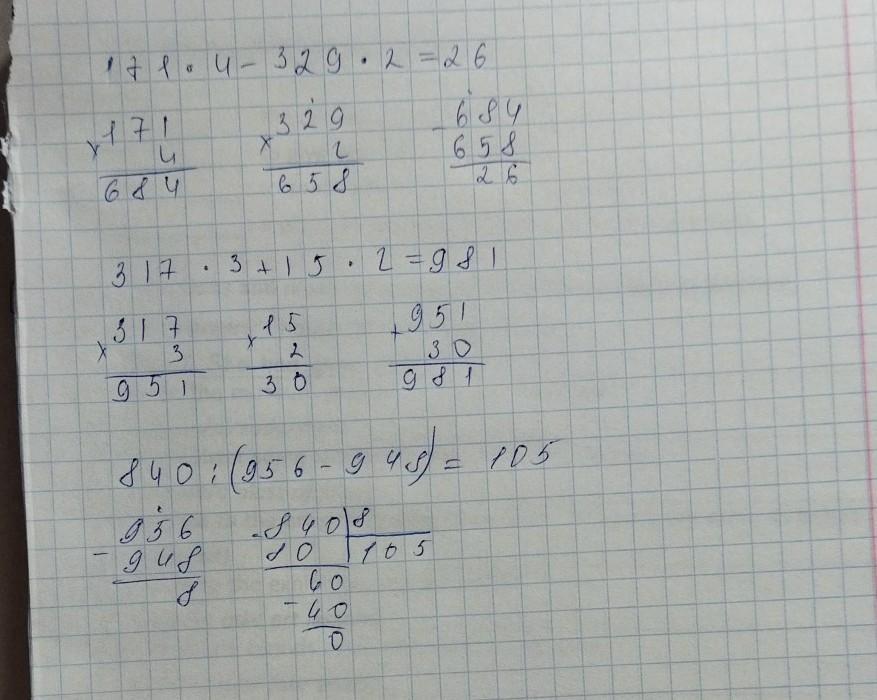 171 · 4 - 329 · 2 = 26
171 329 - 684
× 4 × 2 658
684 658 26
317 · 3 + 15 · 2 = 981
317 15 + 951
× 3 × 2 30
951 30 981
840 : (956 - 948) = 105
956 - 840 | 8
- 948 80 | 105
8 60
- 40
0